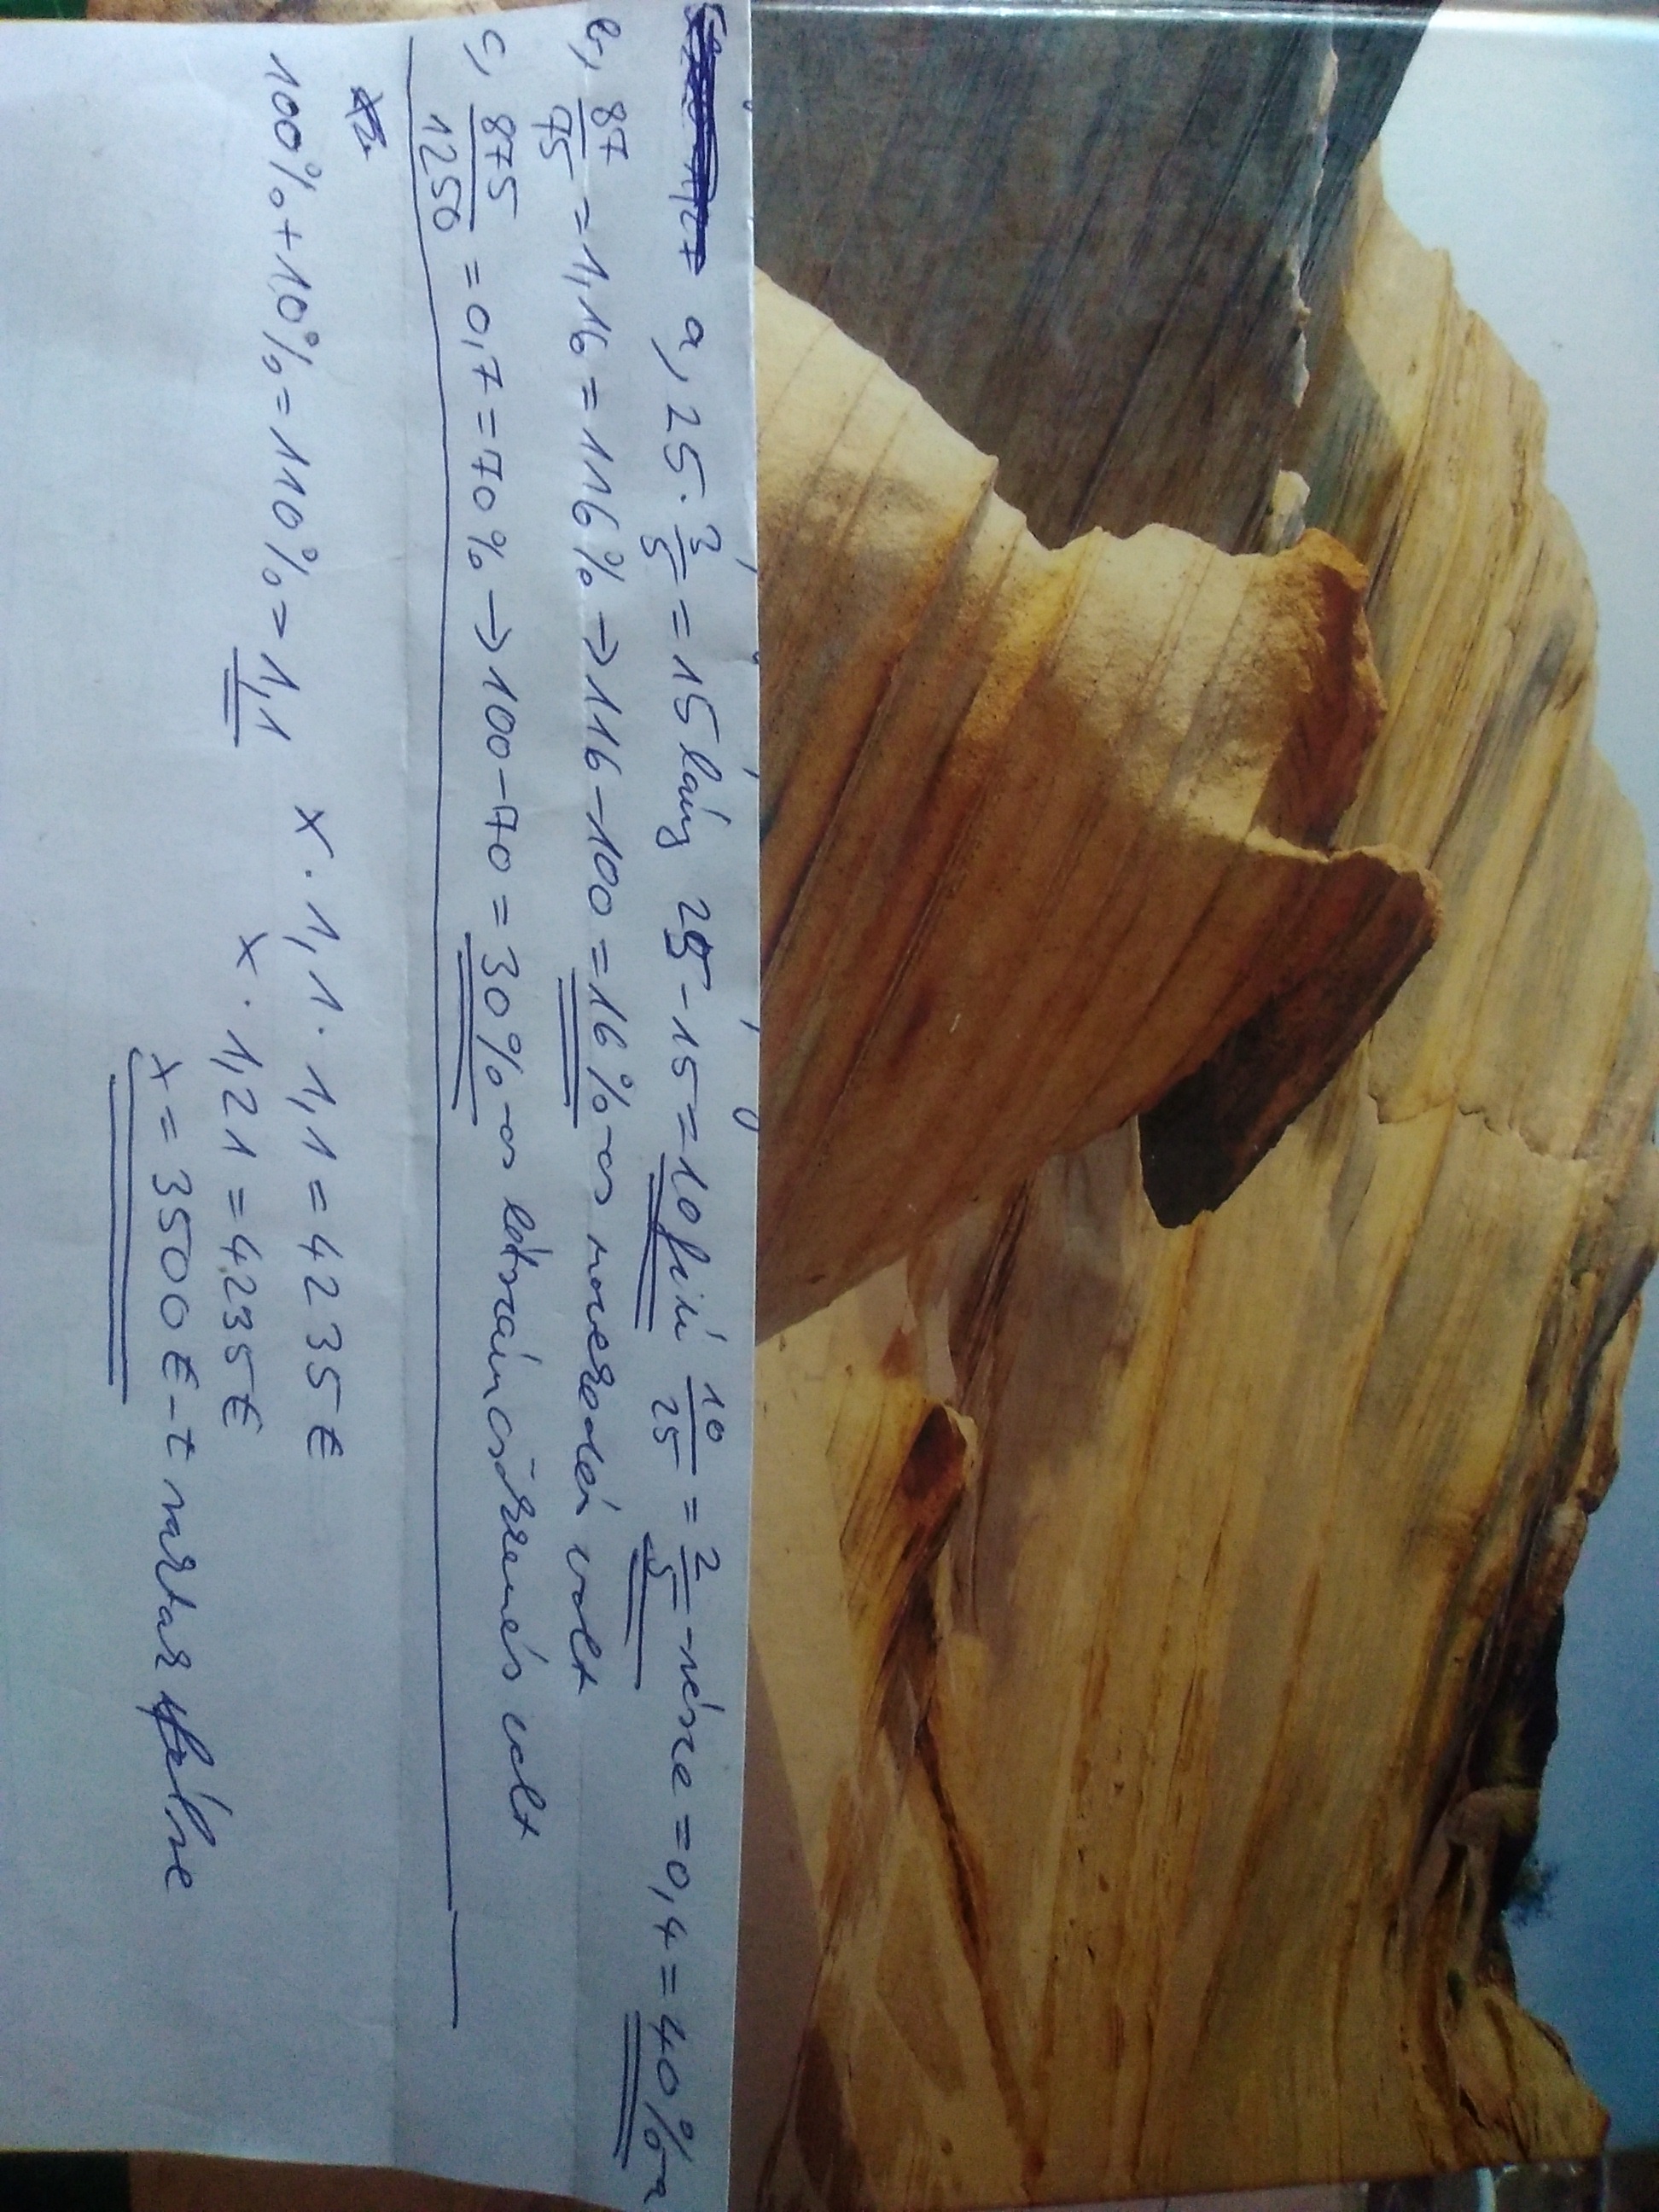 a, 25 · 3/5 = 15 lány 25 - 15 = 10 fiú 10/25 = 2/5 -része = 0,4 = 40%-a
b, 87/75 = 1,16 = 116% → 116 - 100 = 16%-os növekedés volt
c, 875/1250 = 0,7 = 70% → 100 - 70 = 30%-os létszámcsökkenés volt
100% + 10% = 110% = 1,1 x · 1,1 · 1,1 = 4235 €
x · 1,21 = 4235 €
x = 3500 €-t